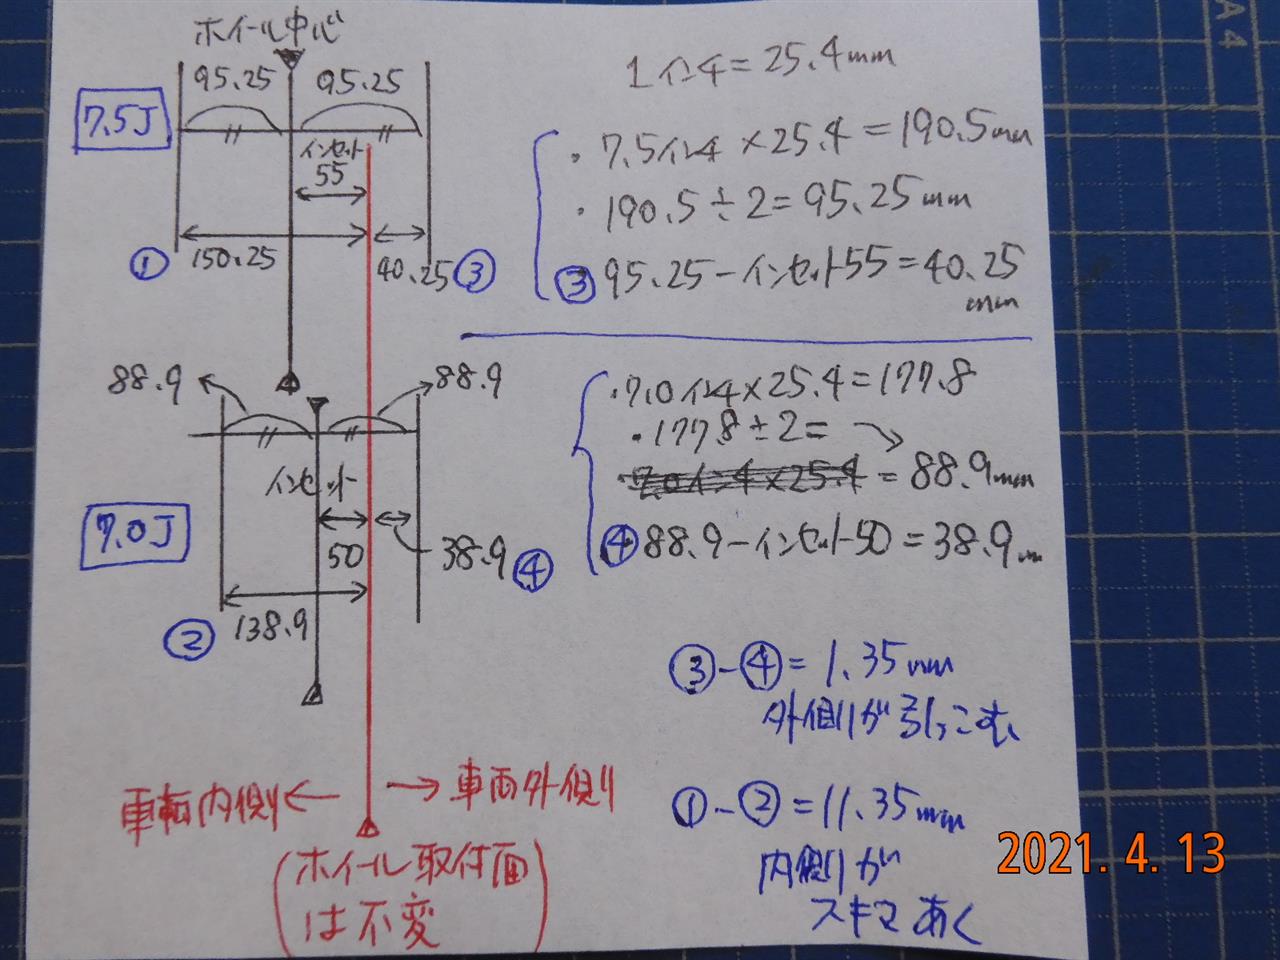 A4
ホイール中心
95.25 95.25
7.5J
インセット
55
① 150.25
40.25 ③
1インチ=25.4mm
・7.5インチ×25.4=190.5mm
・190.5÷2=95.25mm
③ 95.25-インセット55=40.25
mm
88.9 88.9
インセット
7.0J
50
38.9 ④
② 138.9
・7.0インチ×25.4=177.8
・177.8÷2=
7.0インチ×25.4=88.9mm
④ 88.9-インセット50=38.9mm
③-④=1.35mm
外側が引っこむ
①-②=11.35mm
内側が
スキマあく
車輌内側← →車両外側
(ホイール取付面
は不変)
2021. 4. 13